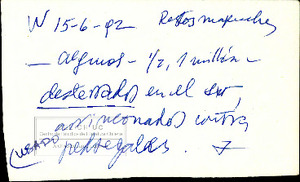 N 15-6-92 Restos mapuches
— algunos - 1/2, 1 millón -
desterrados en el sur,
arrinconados contra
pedregales. 7
(USADO)